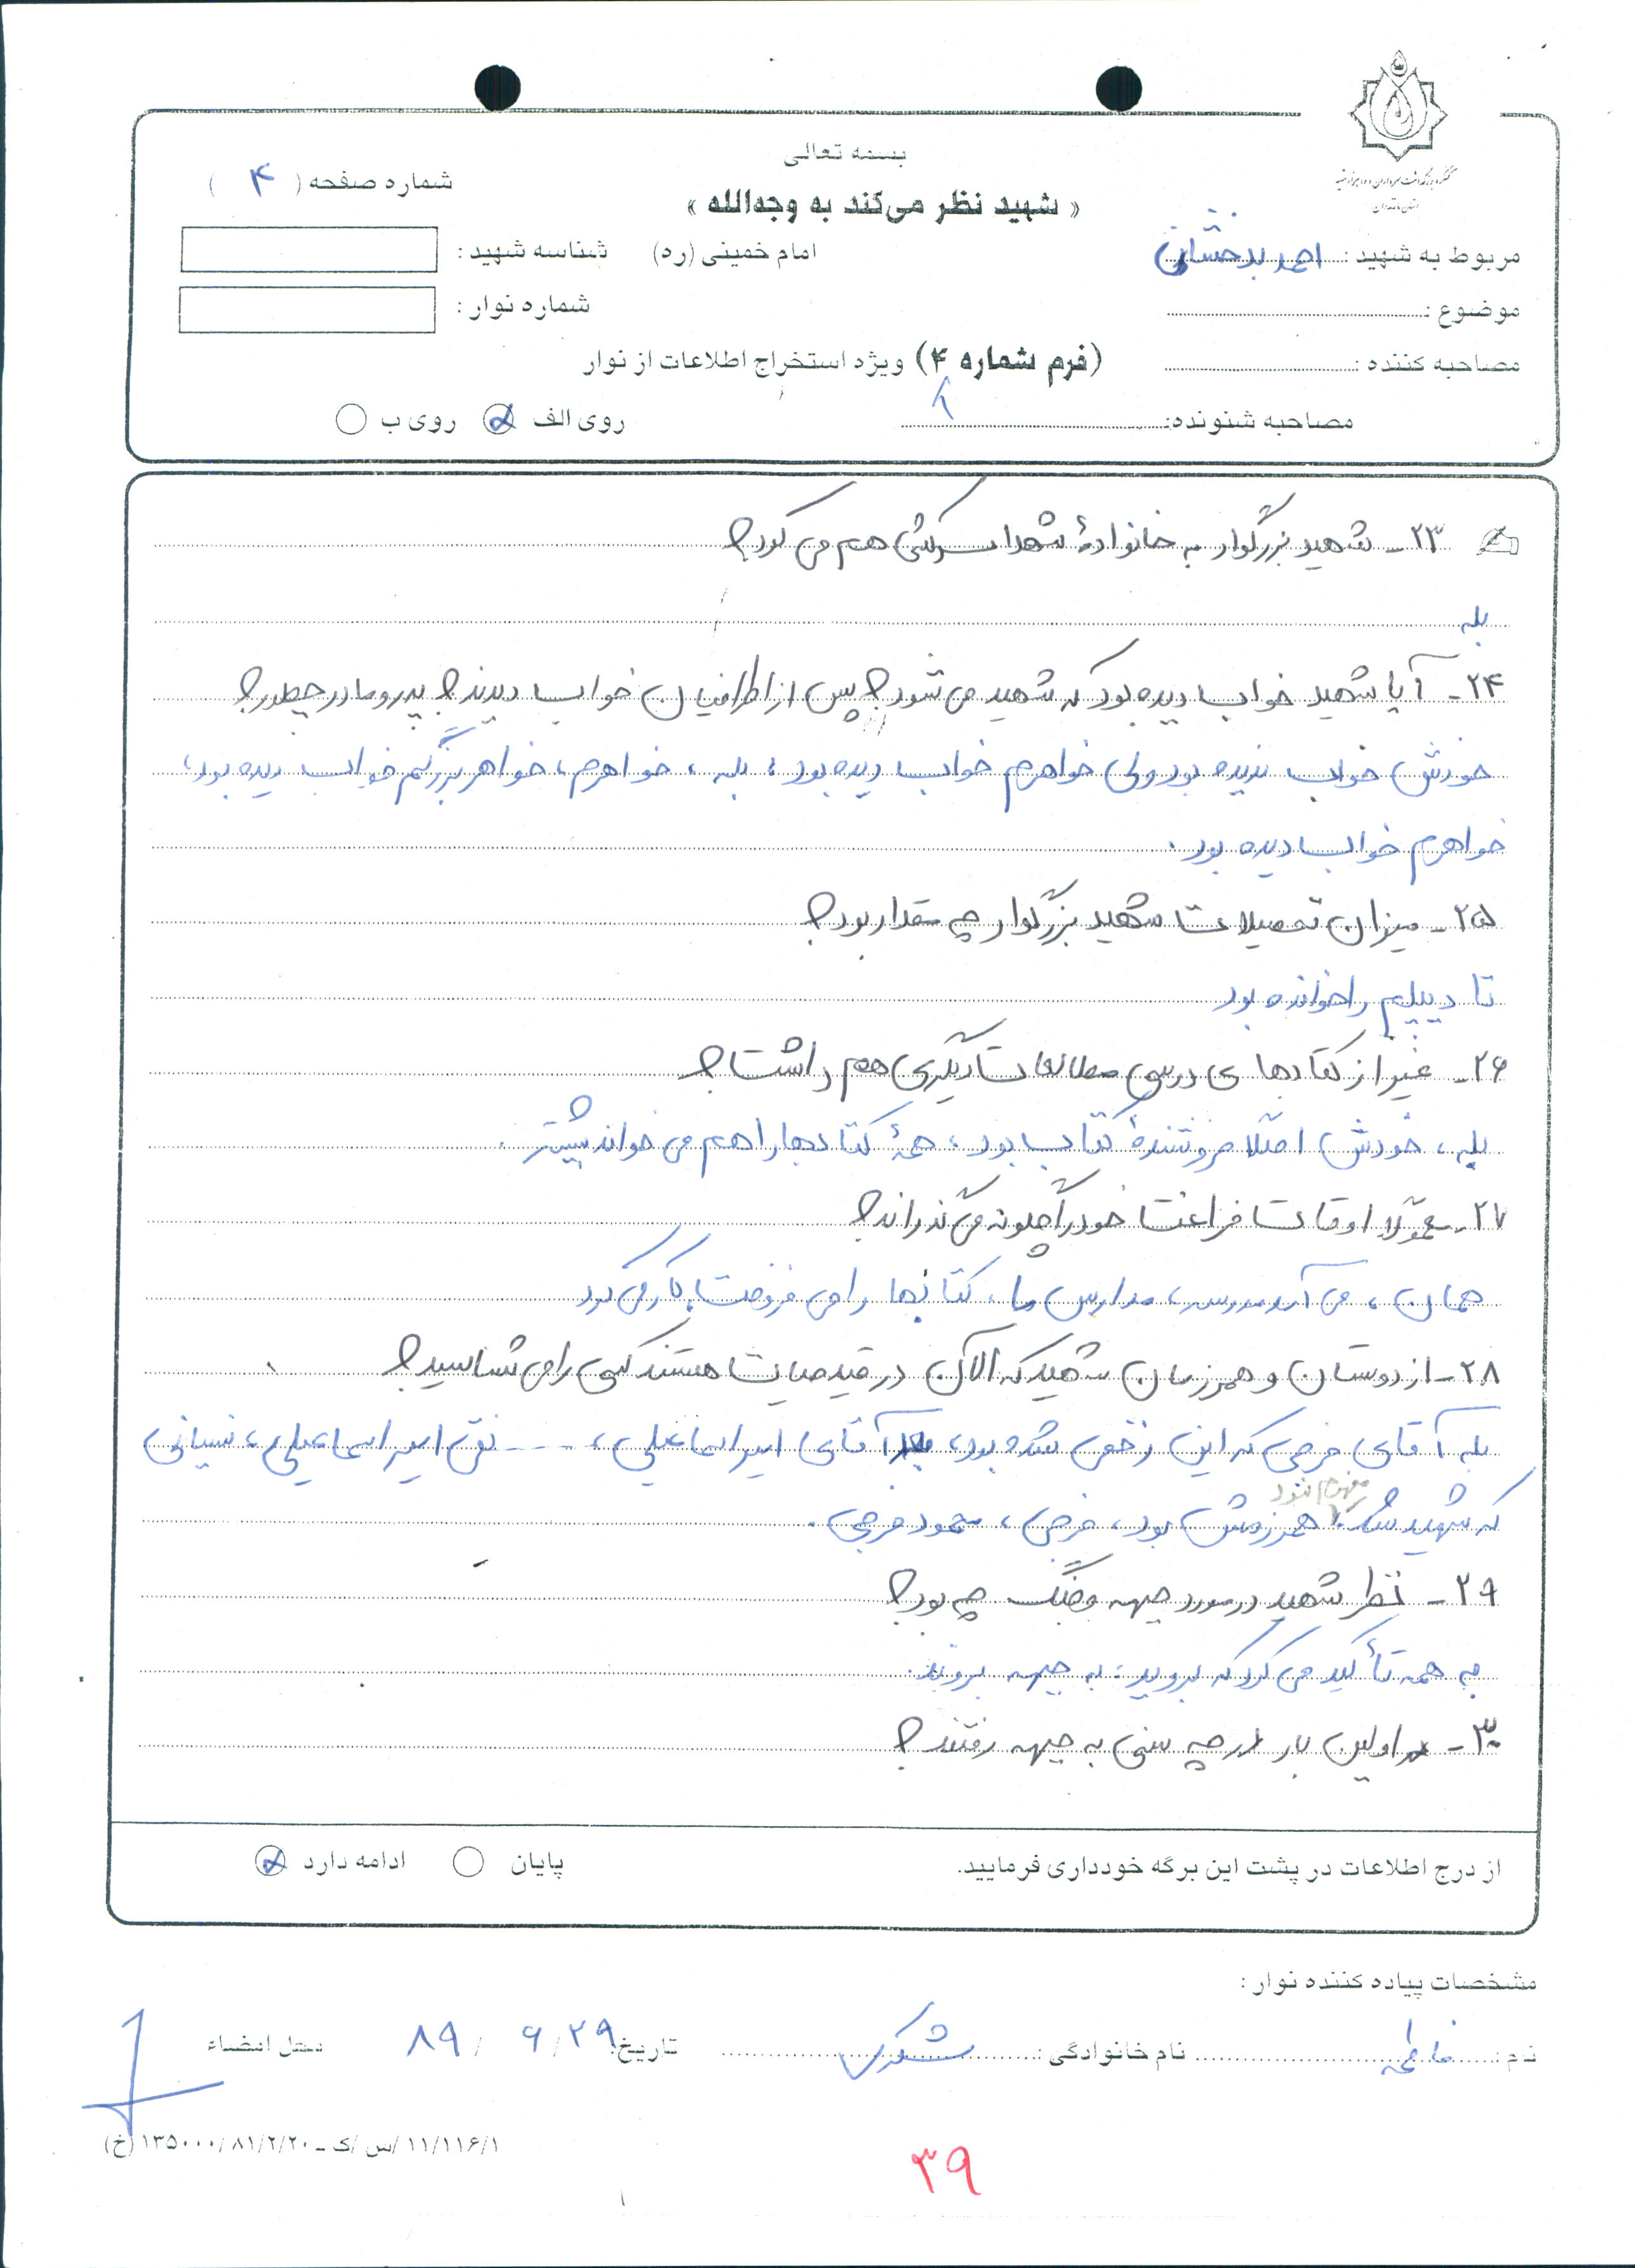 بسمه تعالی
« شهید نظر می‌کند به وجه‌الله »
امام خمینی (ره)
شماره صفحه ( ۴ )
مربوط به شهید : احمد بدخشان
شناسه شهید :
موضوع :
شماره نوار :
مصاحبه کننده :
(فرم شماره ۴) ویژه استخراج اطلاعات از نوار
مصاحبه شنونده:
روی الف روی ب
۲۳- شهید بزرگوار به خانوادهٔ شهدا سرکشی هم می کرد؟
بله
۲۴- آیا شهید خواب دیده بود که شهید می شود؟ پس از اطرافیان خواب دیدند؟ پدر و مادر چطور؟
خودش خواب ندیده بود ولی خواهرم خواب دیده بود، بله، خواهرم، خواهر بزرگم خواب دیده بود،
خواهرم خواب دیده بود.
۲۵- میزان تحصیلات شهید بزرگوار چه مقدار بود؟
تا دیپلم را خوانده بود
۲۶- غیر از کتابهای درسی مطالعات دیگری هم داشت؟
بله، خودش اصلا فروشندهٔ کتاب بود، همهٔ کتابها را هم می خواند بیشتر.
۲۷- معمولا اوقات فراغت خود را چگونه می گذراند؟
همان، می آمد مدرسه، مدارس ما، کتابها را می فروخت، کار می کرد
۲۸- از دوستان و همرزمان شهید که الآن در قید حیات هستند کسی را می شناسید؟
بله آقای فرجی که این زخمی شده بود، آقای امیر اسماعیلی، ---- نقی امیر اسماعیلی،
که شهید شد. مفهوم نبود همرزمش بود، فرجی، محمود فرجی.
۲۹- نظر شهید در مورد جبهه و جنگ چه بود؟
به همه تأکید می کرد که بروید، به جبهه بروند.
۳۰- اولین بار در چه سنی به جبهه رفتند؟
از درج اطلاعات در پشت این برگه خودداری فرمایید.
پایان ادامه دارد
مشخصات پیاده کننده نوار :
نام : فاطمه نام خانوادگی : تاریخ: ۸۹ / ۶ / ۲۹ محل امضاء
۱۱/۱۱۶/۱ /س /ک ـ ۸۱/۲/۲۰ /۱۳۵۰۰۰ (خ)
۳۹